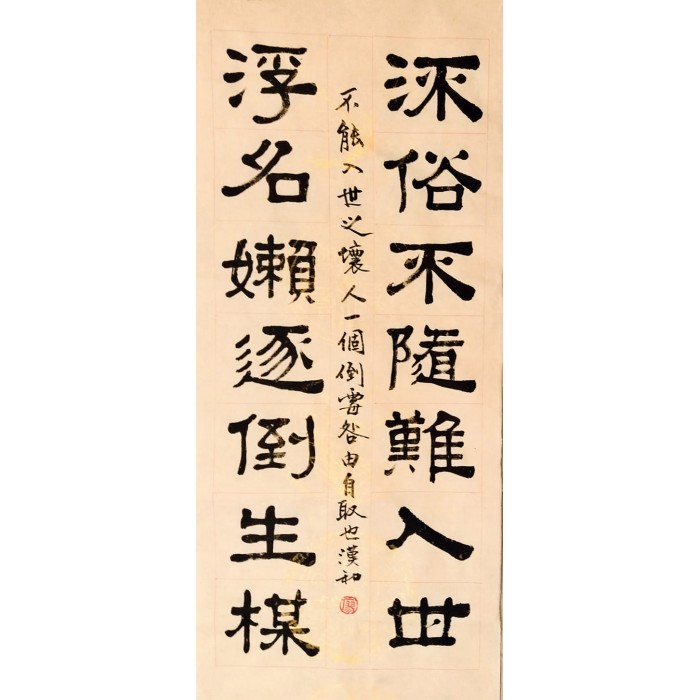 流俗不隨難入世
不能入世之壞人一個倒霉咎由自取也漢和
浮名嬾逐倒生楳